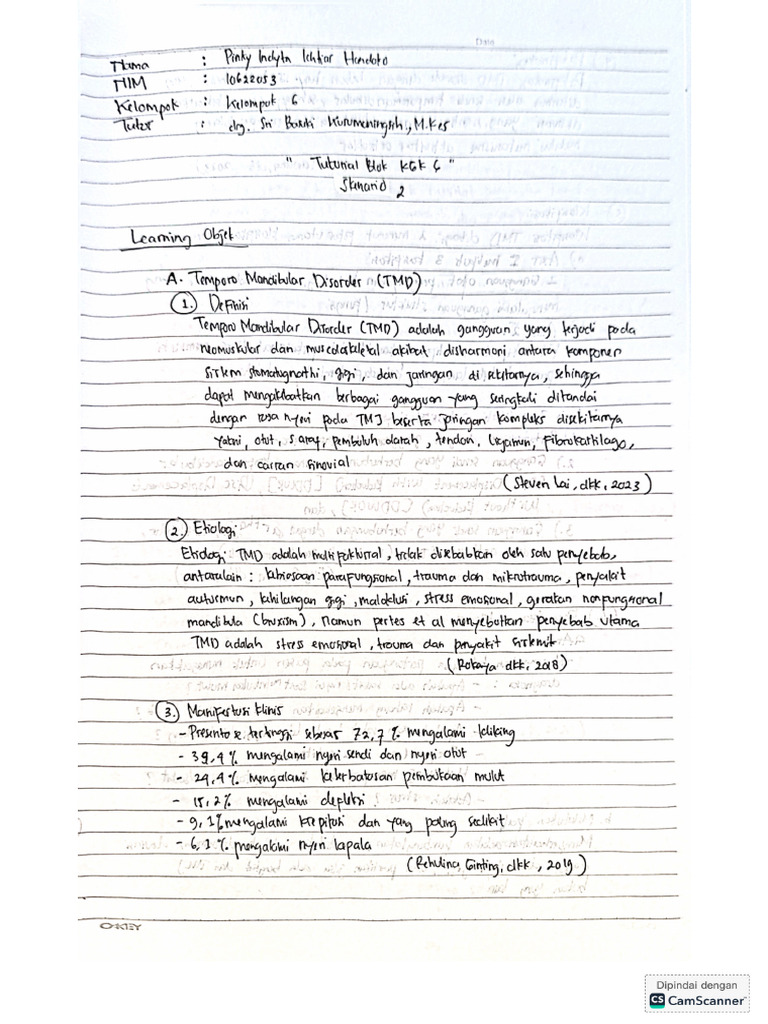 Date
Nama : Pinky Indyta Ichtiar Handoko
NIM : 10622053
Kelompok : Kelompok 6
Tutor : drg. Sri Bakti Kurumaningsih, M.Kes
" Tutorial Blok KGK 6 "
Skenario 2
Learning Objek
A. Temporo Mandibular Disorder (TMD)
1. Definisi
Temporo Mandibular Disorder (TMD) adalah gangguan yang terjadi pada
neomuskular dan musculoskeletal akibat disharmoni antara komponen
sistem stomatognathi, gigi, dan jaringan di sekitarnya, sehingga
dapat mengakibatkan berbagai gangguan yang seringkali ditandai
dengan rasa nyeri pada TMJ beserta jaringan kompleks disekitarnya
yakni, otot, saraf, pembuluh darah, tendon, ligamen, fibrokartilago,
dan cairan sinovial
(Steven Lai, dkk, 2023)
2. Etiologi
Etiologi TMD adalah multifaktorial, tidak disebabkan oleh satu penyebab,
antaralain : kebiasaan parafungsional, trauma dan mikrotrauma, penyakit
autoimun, kehilangan gigi, maloklusi, stress emosional, gerakan nonfungsional
mandibula (bruxism), namun pertes et al menyebutkan penyebab utama
TMD adalah stress emosional, trauma dan penyakit sistemik
(Rokaya dkk, 2018)
3. Manifestasi klinis
- Presentase tertinggi sebesar 72,7 % mengalami kliking
- 39,4 % mengalami nyeri sendi dan nyeri otot
- 24,4 % mengalami keterbatasan pembukaan mulut
- 15,2 % mengalami defleksi
- 9,1 % mengalami krepitasi dan yang paling sedikit
- 6,1 % mengalami nyeri kepala
(Rehulina, Ginting, dkk, 2019)
OKEY
Dipindai dengan
CS CamScanner